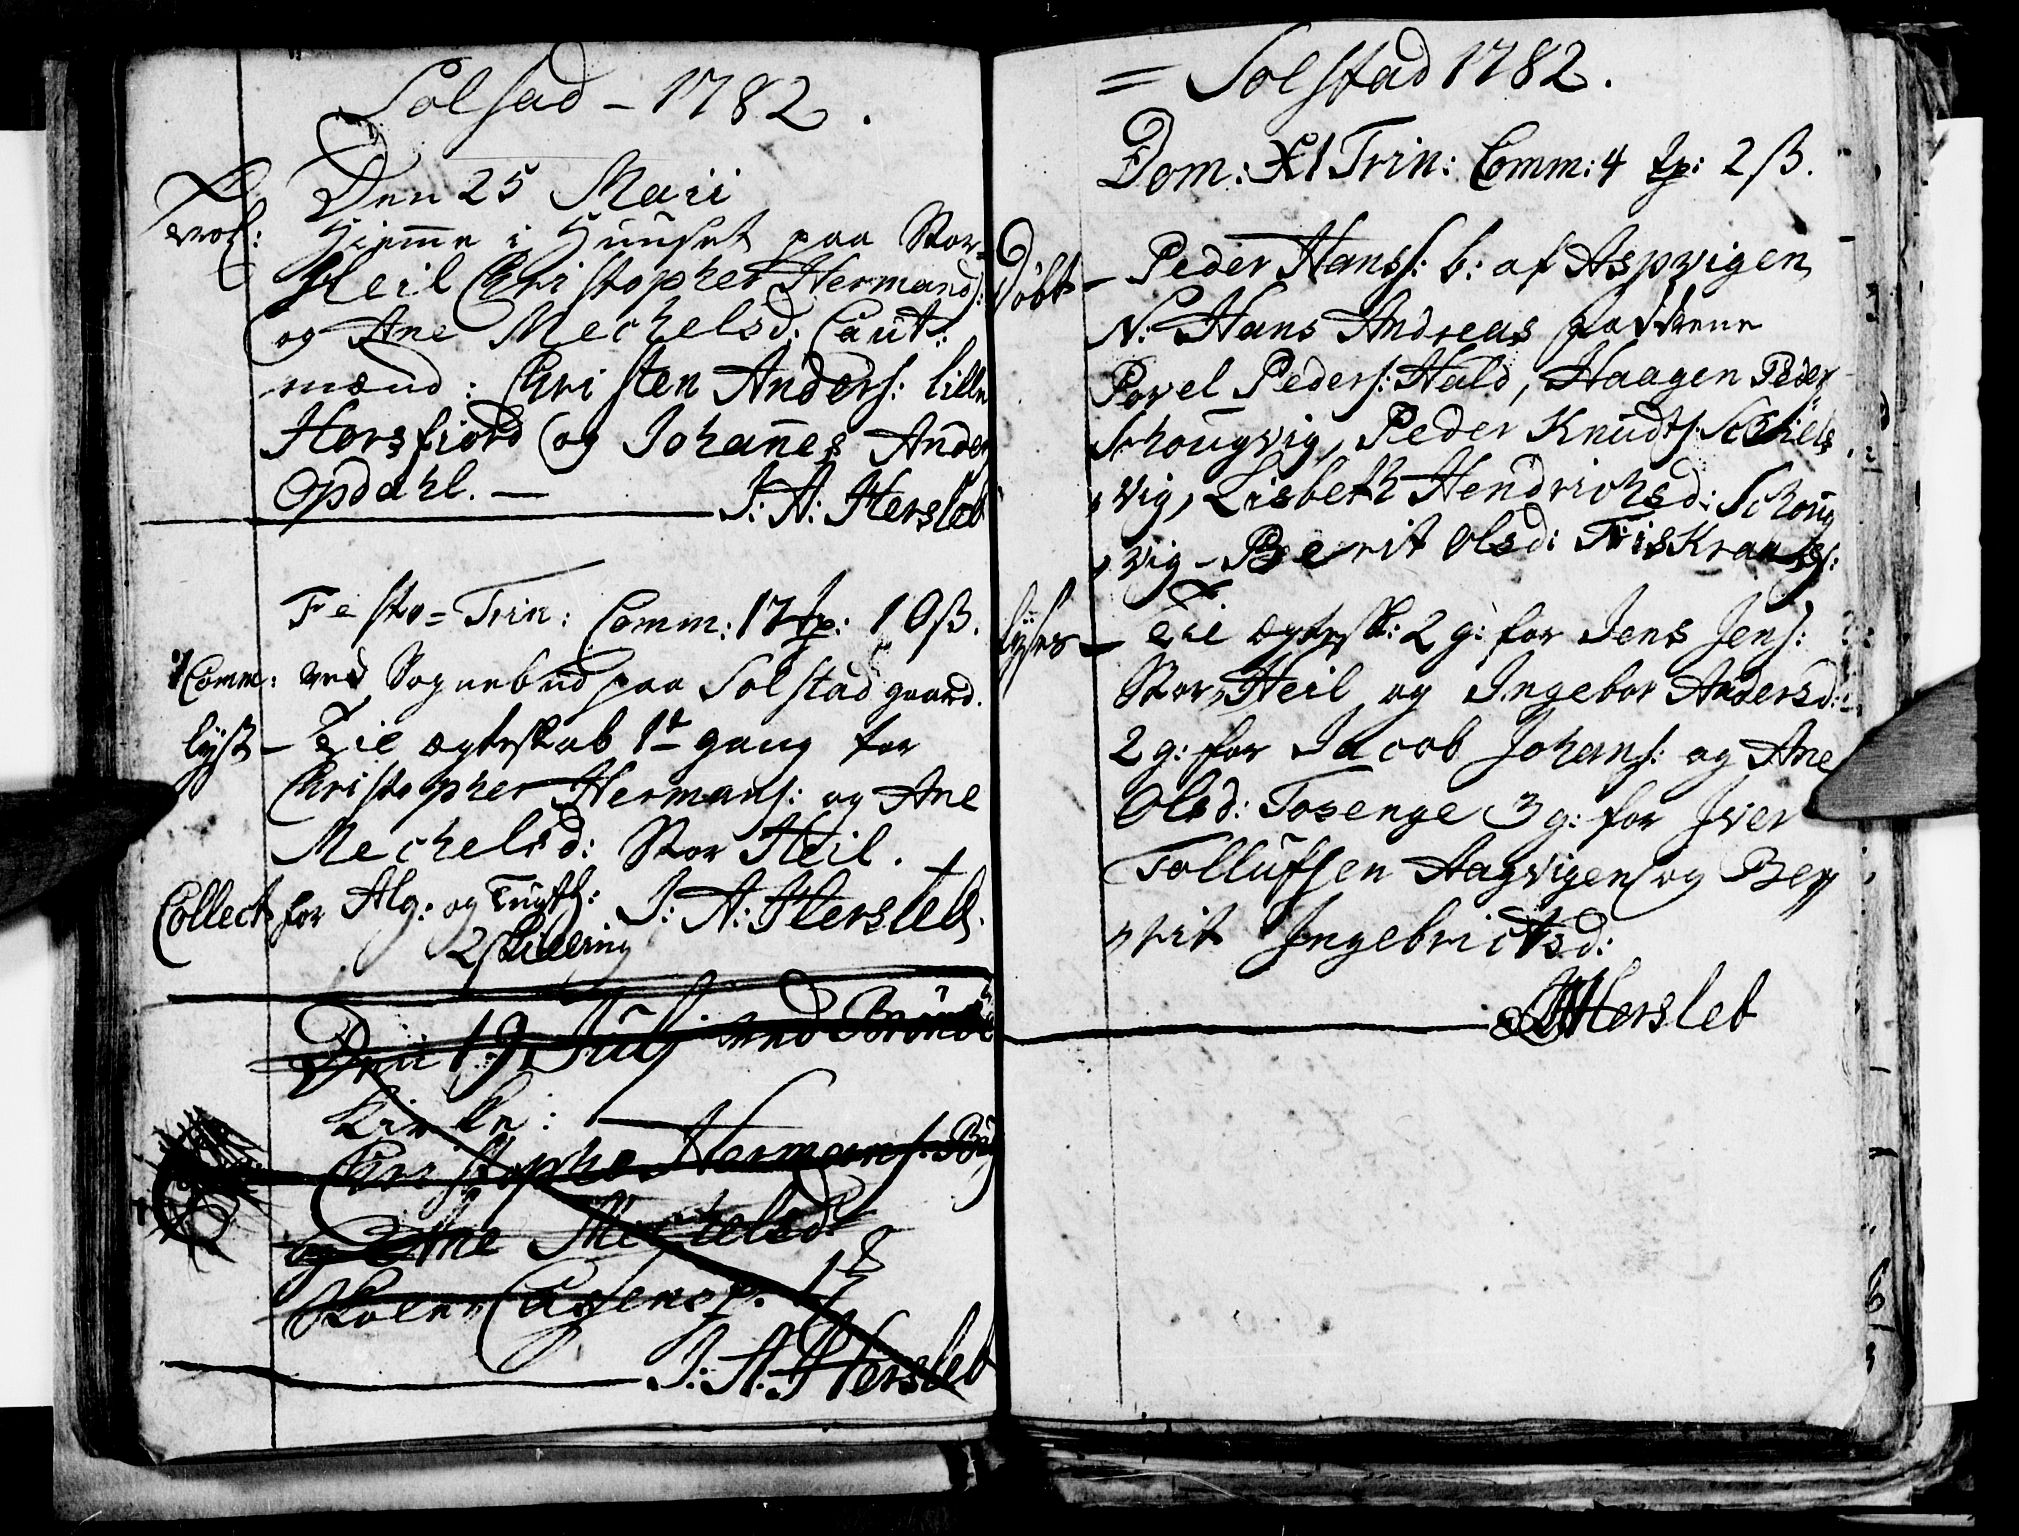 Solstad - 1782.
Den 25 Maii
Trol: Hiemme i Huuset paa Stor-
Heil Christopher Hermands:
og Ane Mechelsd: Caut:
mænd: Christen Anders: lille
Horsfiord og Johannes Anders
Opdahl. — J: A: Hersleb
Festo = Trin: Comm: 17 sp: 10 ß.
1 Comm: ved Sognebud paa Solstad gaard.
lyst - Til ægteskab 1te gang for
Christopher Hermans: og Ane
Mechelsd: Stor Heil.
Collect for Alg: og Tugth: J: A: Hersleb.
2 skilling
Den 19 Julj ved Brönöe
Kirke:
Christopher Hermans:
og Ane Mechelsd:
Skolens Casse
J: A: Hersleb
= Solstad 1782.
Dom: XI Trin: Comm: 4 sp: 2 ß.
Döbt - Peder Hans: b: af Aspvigen
N: Hans Andreas Faddrene
Povel Peders: Hald, Haagen Peders
Schougvig, Peder Knudts: Schiels
vig, Lisbeth Hendrichsd: Schoug
vig - Berit Olsd: Tiis
lyses - Til ægtesk: 2 g: for Jens Jens:
Stor Heil og Ingebor Andersd:
2 g: for Jacob Johans: og Ane
Olsd: Tosenge 3 g: for Iver
Tollufsen Aagvigen og Ber
rit Ingebrictsd:
JAHersleb